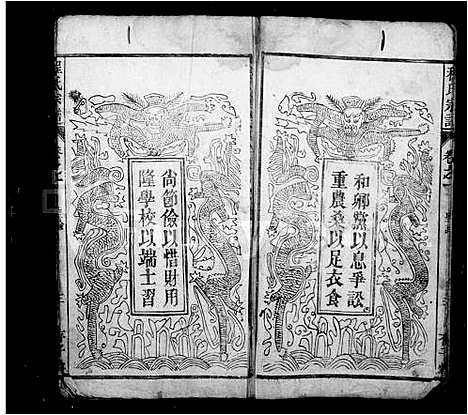 和鄉黨以息爭訟
重農桑以足衣食
尚節儉以惜財用
隆學校以端士習
程氏宗譜